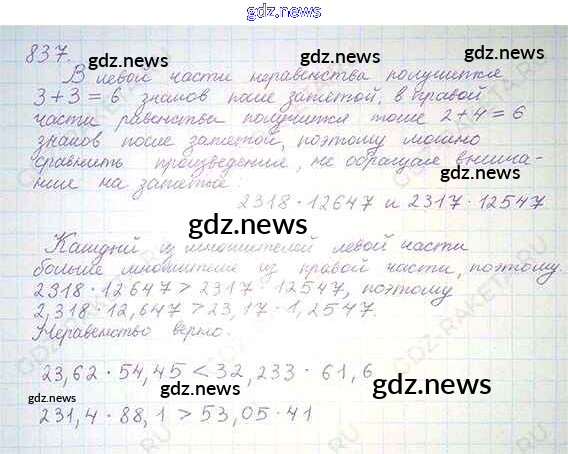 gdz.news
837.
gdz.news gdz.news
В левой части неравенства получится
3+3=6 знаков после запятой, в правой
части равенства получится тоже 2+4=6
знаков после запятой, поэтому можно
сравнить произведение, не обращая внима-
ние на запятые:
2318 · 12647 и 2317 · 12547
gdz.news
Каждый из множителей левой части
больше множителя из правой части, поэтому
2318 · 12647 > 2317 · 12547, поэтому
2,318 · 12,647 > 23,17 · 1,2547.
Неравенство верно.
gdz.news
23,62 · 54,45 < 32,233 · 61,6
gdz.news gdz.news gdz.news
231,4 · 88,1 > 53,05 · 41